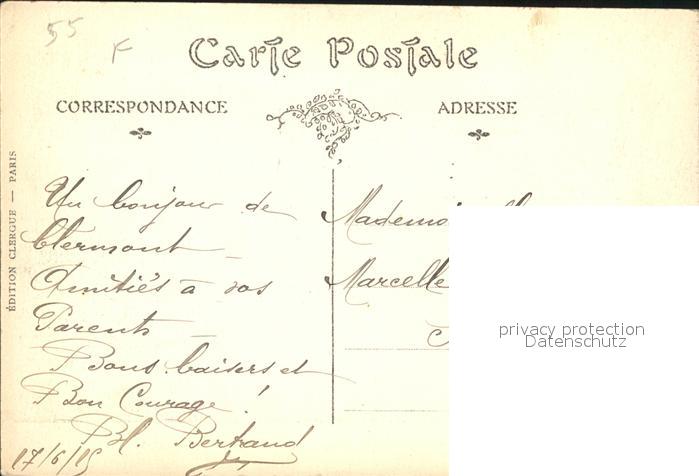 55
Carte Postale
CORRESPONDANCE
ADRESSE
ÉDITION CLERGUE — PARIS
Un bonjour de
Clermont
Amitiés à vos
Parents
Bons baisers et
Bon Courage !
Bl. Bertrand
17/6/15
Mademoiselle
Marcelle
privacy protection
Datenschutz